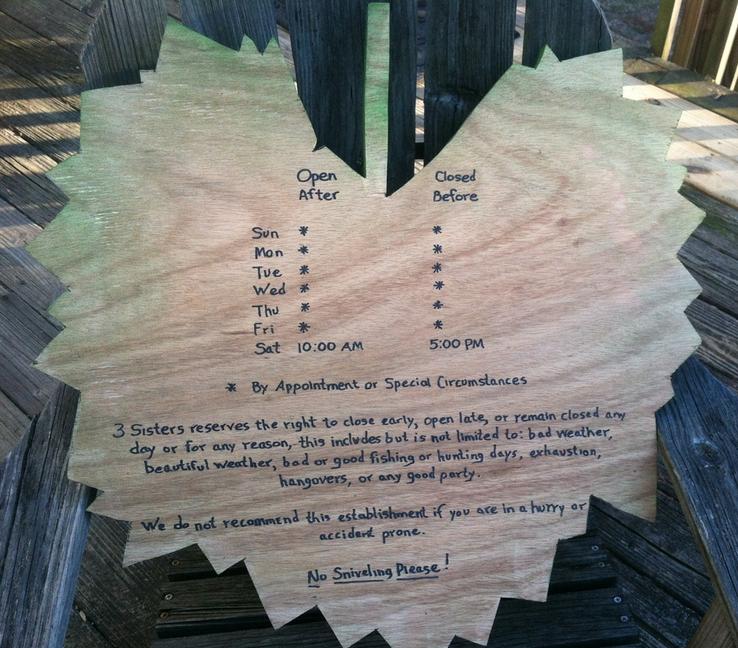 Open Closed
After Before
Sun * *
Mon * *
Tue * *
Wed * *
Thu * *
Fri * *
Sat 10:00 AM 5:00 PM
* By Appointment or Special Circumstances
3 Sisters reserves the right to close early, open late, or remain closed any
day or for any reason, this includes but is not limited to: bad weather,
beautiful weather, bad or good fishing or hunting days, exhaustion,
hangovers, or any good party.
We do not recommend this establishment if you are in a hurry or
accident prone.
No Sniveling Please!